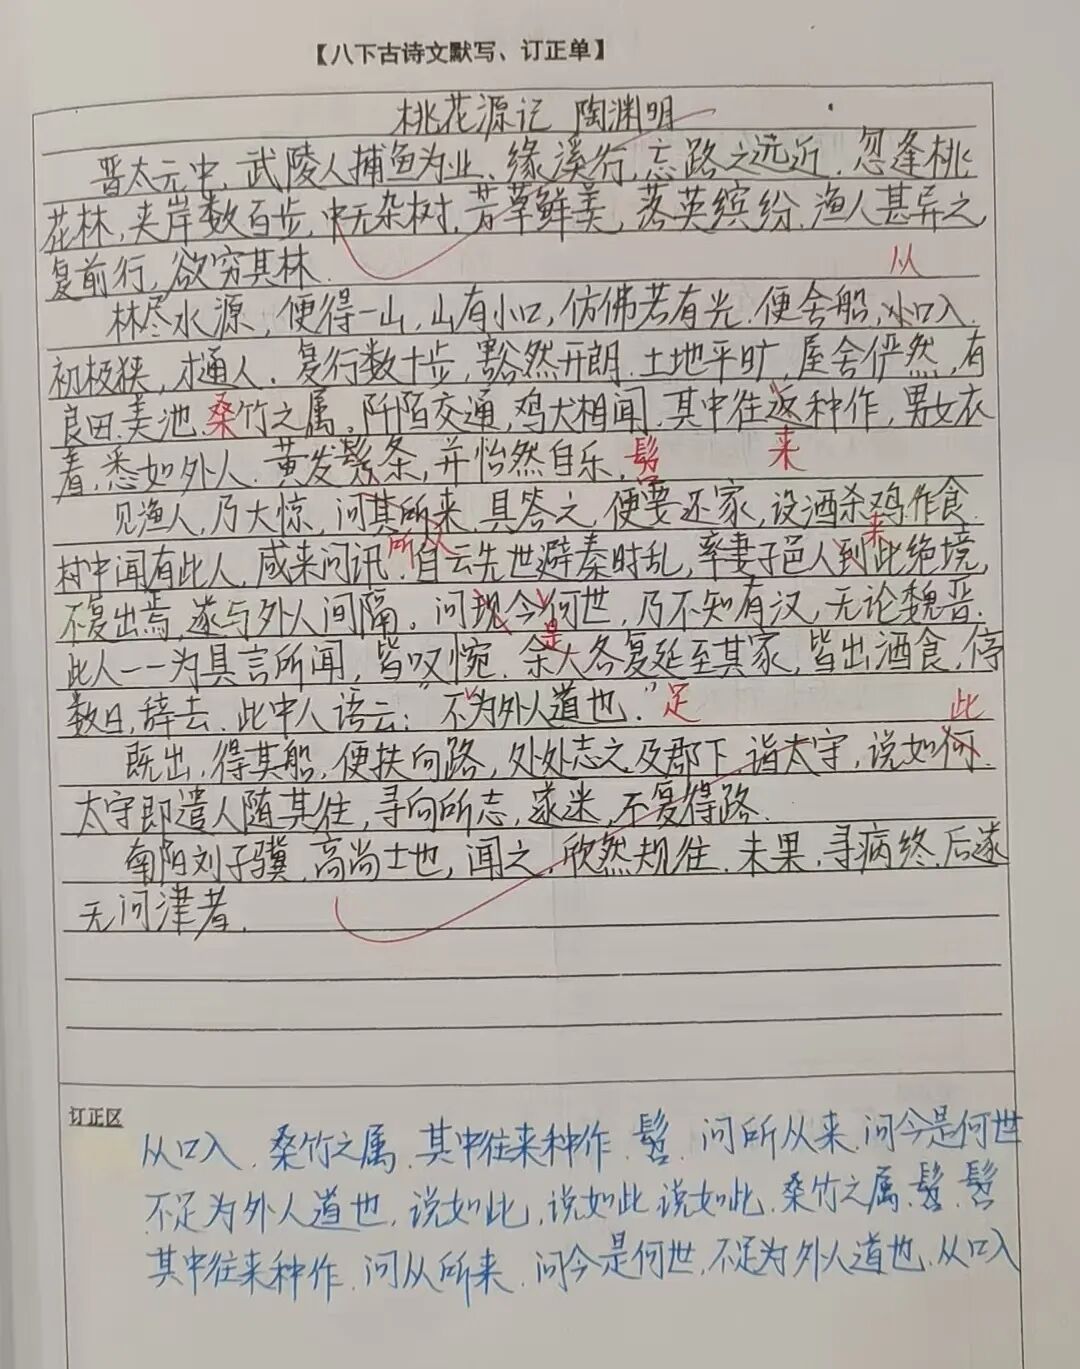 【八下古诗文默写、订正单】
桃花源记 陶渊明
晋太元中,武陵人捕鱼为业、缘溪行,忘路之远近.忽逢桃
花林,夹岸数百步,中无杂树,芳草鲜美,落英缤纷.渔人甚异之
复前行,欲穷其林.
从
林尽水源,便得一山,山有小口,仿佛若有光.便舍船,小口入.
初极狭,才通人.复行数十步,豁然开朗.土地平旷,屋舍俨然,有
良田、美池,桑竹之属。阡陌交通,鸡犬相闻.其中往返种作,男女衣
着,悉如外人.黄发髫条,并怡然自乐, 髫 来
见渔人,乃大惊,问其所来.具答之.便要还家,设酒杀鸡作食.
所从 来
村中闻有此人,咸来问讯.自云先世避秦时乱,率妻子邑人到此绝境,
不复出焉,遂与外人间隔。问现今何世,乃不知有汉,无论魏晋.
是
此人一一为具言所闻,皆叹惋.余人各复延至其家,皆出酒食,停
数日,辞去.此中人语云:"不为外人道也." 足 此
既出,得其船,便扶向路,处处志之.及郡下,诣太守,说如何.
太守即遣人随其往,寻向所志,遂迷,不复得路.
南阳刘子骥,高尚士也,闻之,欣然规往.未果,寻病终.后遂
无问津者.
订正区
从口入.桑竹之属.其中往来种作.髫.问所从来.问今是何世
不足为外人道也,说如此,说如此 说如此.桑竹之属.髫.髫
其中往来种作.问从所来.问今是何世,不足为外人道也.从口入